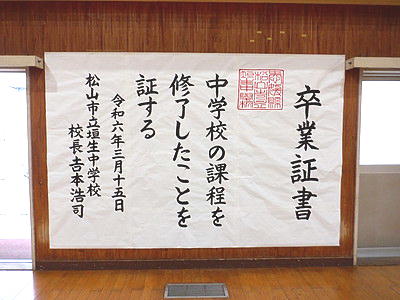 卒業証書
中学校の課程を
修了したことを
証する
令和六年三月十五日
松山市立垣生中学校
校長吉本浩司